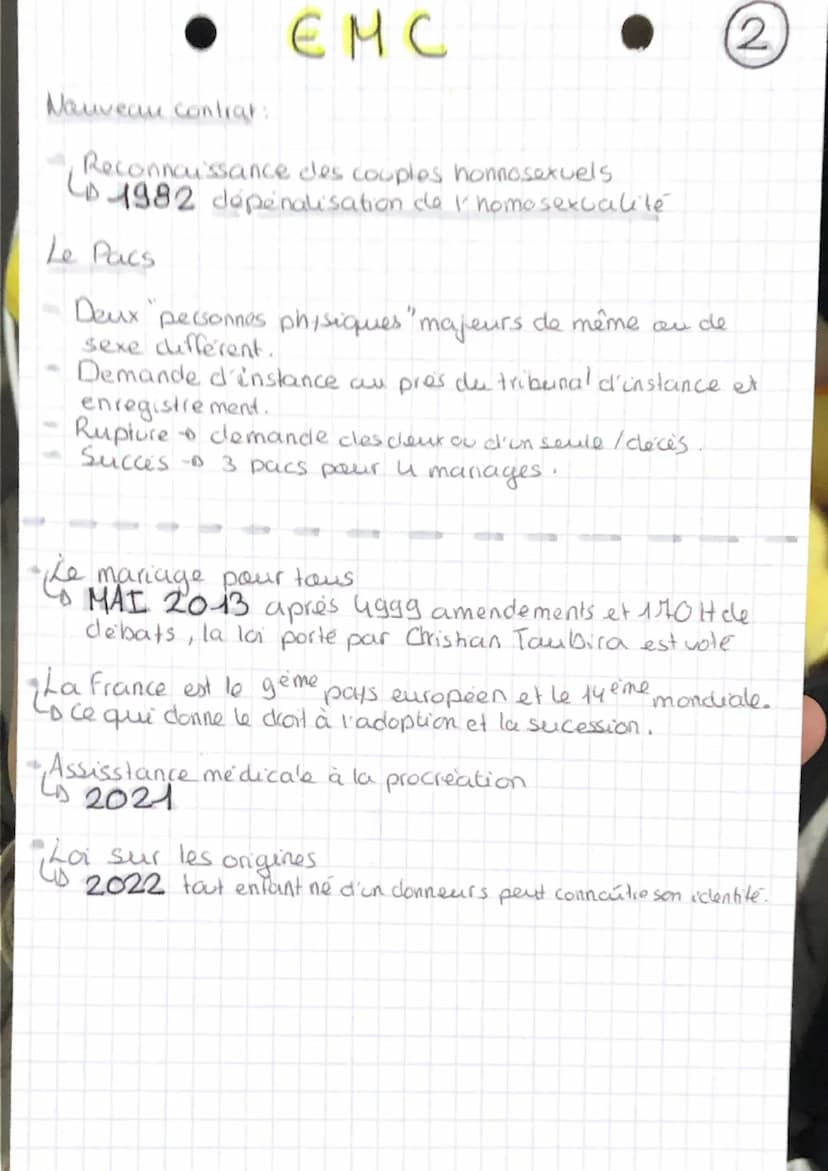 EMC
2
Nouveau contrat:
- Reconnaissance des couples honnosexuels
↳ 1982 dépénalisation de l'homosexualité
Le Pacs
- Deux "personnes physiques" majeurs de même ou de
sexe différent.
- Demande d'instance au près du tribunal d'instance et
enregistrement.
- Rupture → demande des deux ou d'un seule / décès.
- Succès → 3 pacs pour 4 mariages.
- Le mariage pour tous
↳ MAI 2013 après 4999 amendements et 170 H de
débats, la loi porté par Christian Taubira est voté
- La France est le 9ème pays européen et le 14ème mondiale.
↳ ce qui donne le droit à l'adoption et la sucession.
- Assisstance médicale à la procréation
↳ 2021
- Loi sur les origines
↳ 2022 tout enfant né d'un donneurs peut connaître son identité.